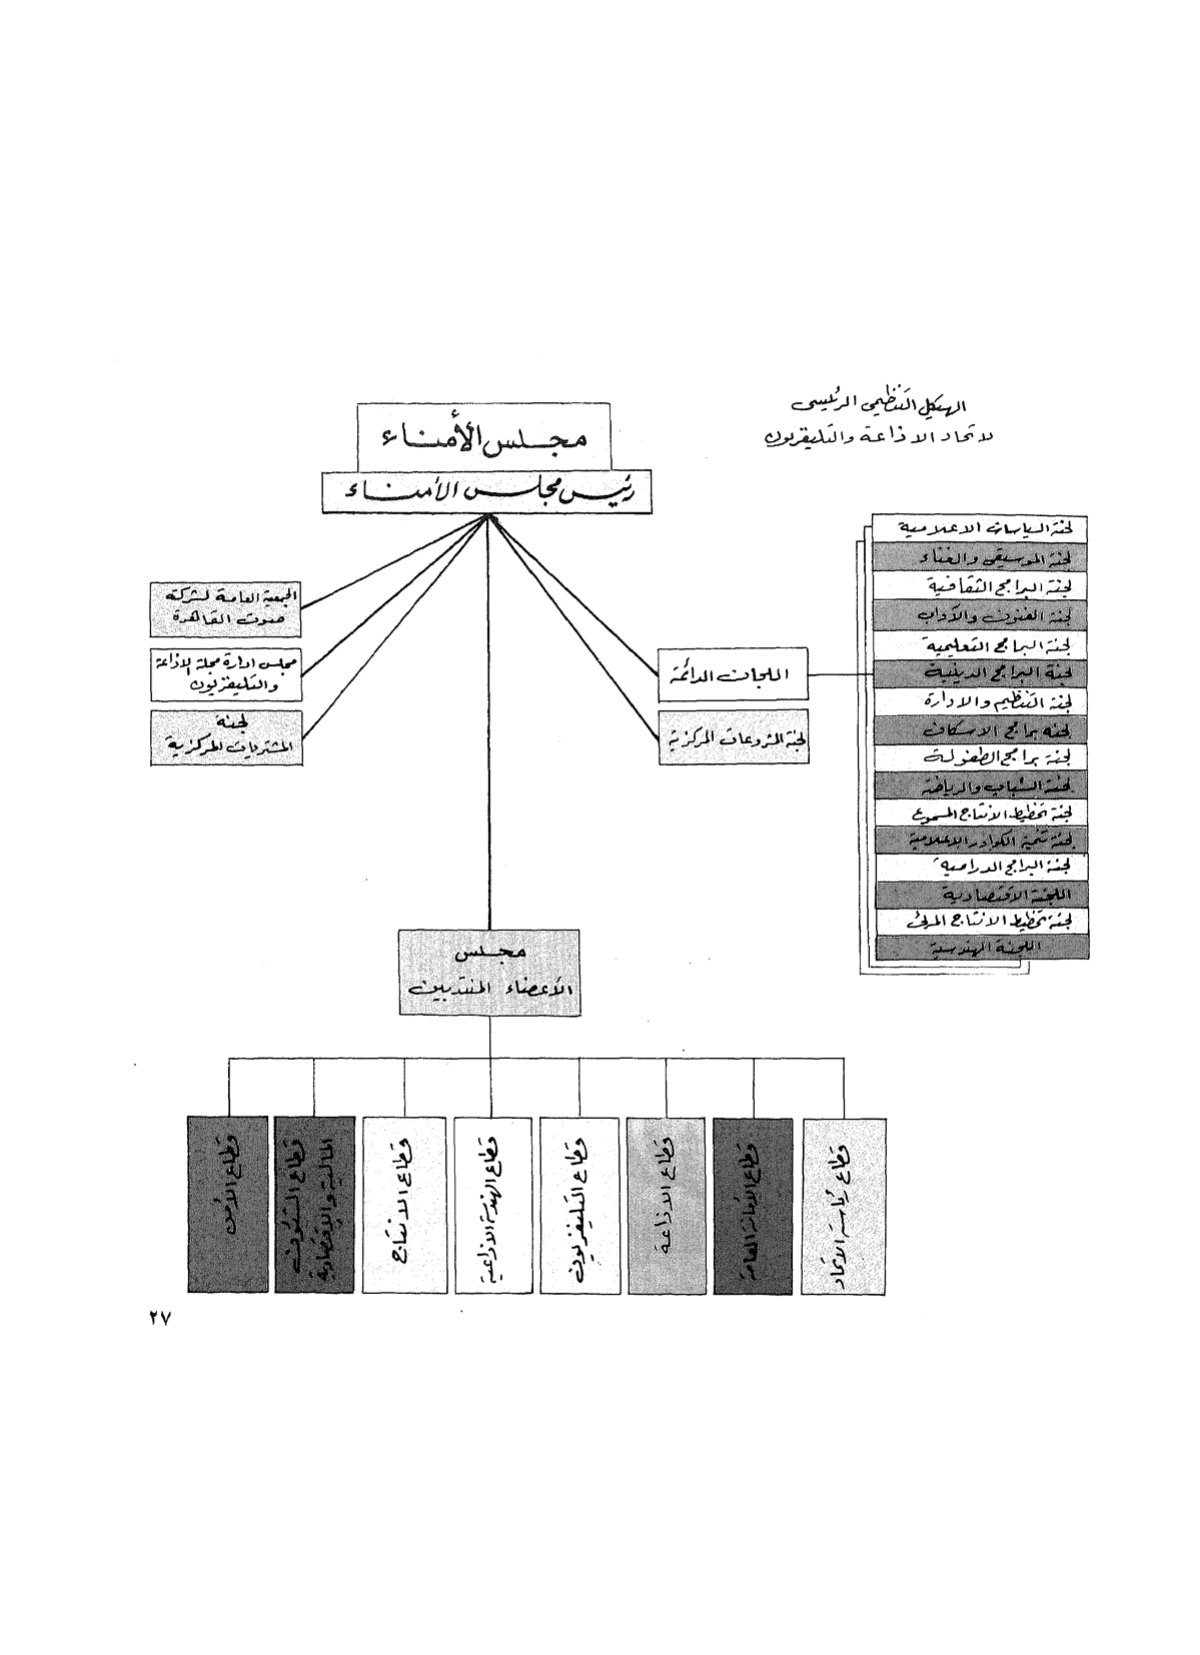 الهيكل التنظيمى الرئيسى
لاتحاد الاذاعة والتليفزيون
مجلس الأمناء
رئيس مجلس الأمناء
الجمعية العامة لشركة
صوت القاهرة
مجلس ادارة مجلة الاذاعة
والتليفزيون
لجنة
المشتريات المركزية
اللجان الدائمة
لجنة المشروعات المركزية
لجنة السياسات الاعلامية
لجنة الموسيقى والغناء
لجنة البرامج الثقافية
لجنة الفنون والآداب
لجنة البرامج التعليمية
لجنة البرامج الدينية
لجنة التنظيم والادارة
لجنة برامج الاسكان
لجنة برامج الطفولة
لجنة الشباب والرياضة
لجنة تخطيط الانتاج المسموع
لجنة تنمية الكوادر الاعلامية
لجنة البرامج الدرامية
اللجنة الاقتصادية
لجنة تخطيط الانتاج المرئى
اللجنة الهندسية
مجلس
الأعضاء المنتدبين
قطاع رئاسة الاتحاد
قطاع الأمانة العامة
قطاع الاذاعة
قطاع التليفزيون
قطاع الهندسة الاذاعية
قطاع الانتاج
قطاع الشئون
المالية والاقتصادية
قطاع الأمن
٢٧